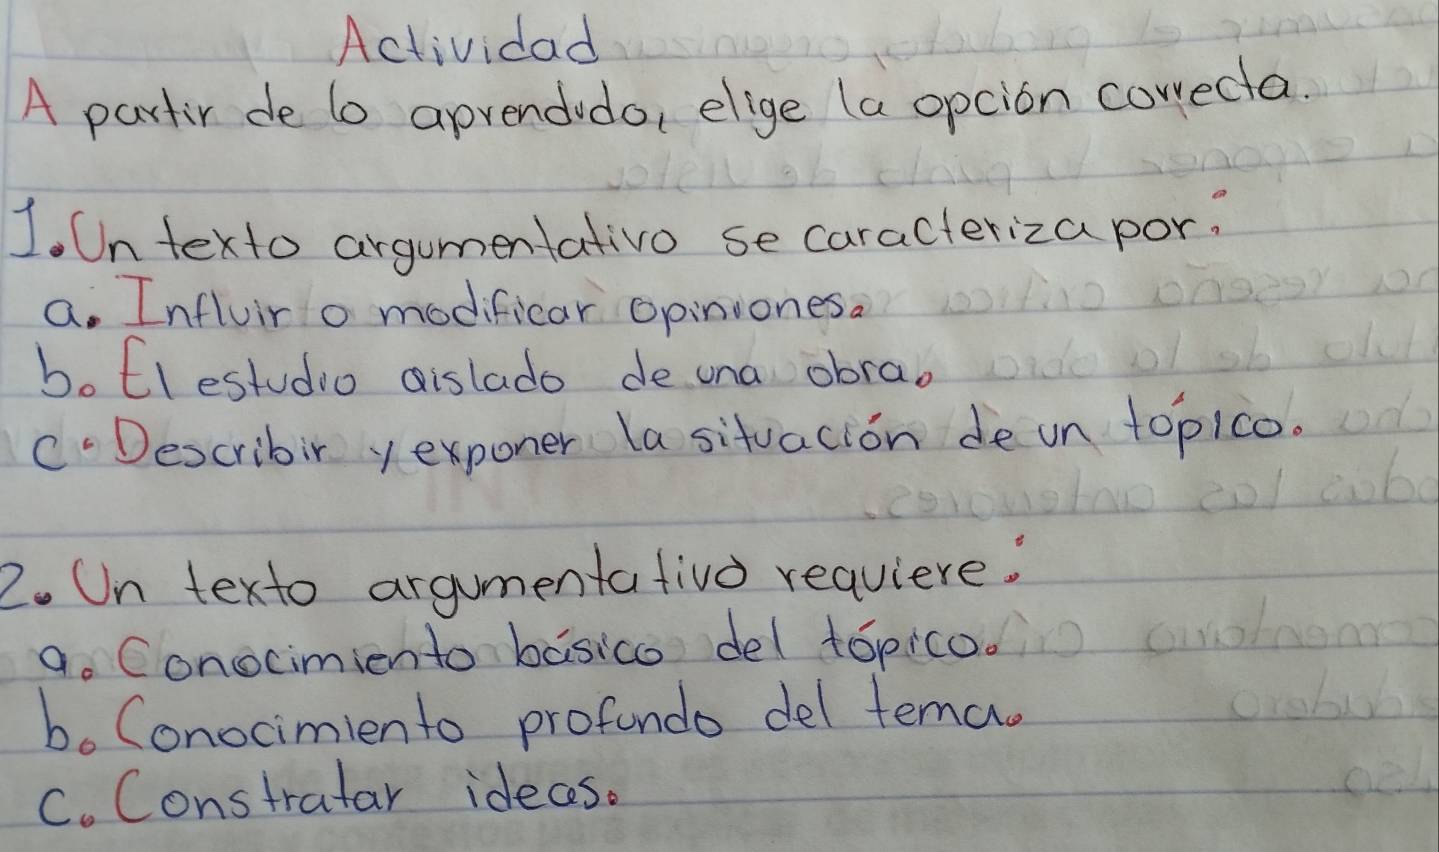 Actividad
A partir de lo aprendido, elige la opción correcta.
1. Un texto argumentativo se caracteriza por:
a. Influir o modificar opiniones.
b. El estudio aislado de una obra.
c. Describir y exponer la situación de un tópico.
2. Un texto argumentativo requiere:
a. Conocimiento básico del tópico.
b. Conocimiento profundo del tema.
c. Constratar ideas.